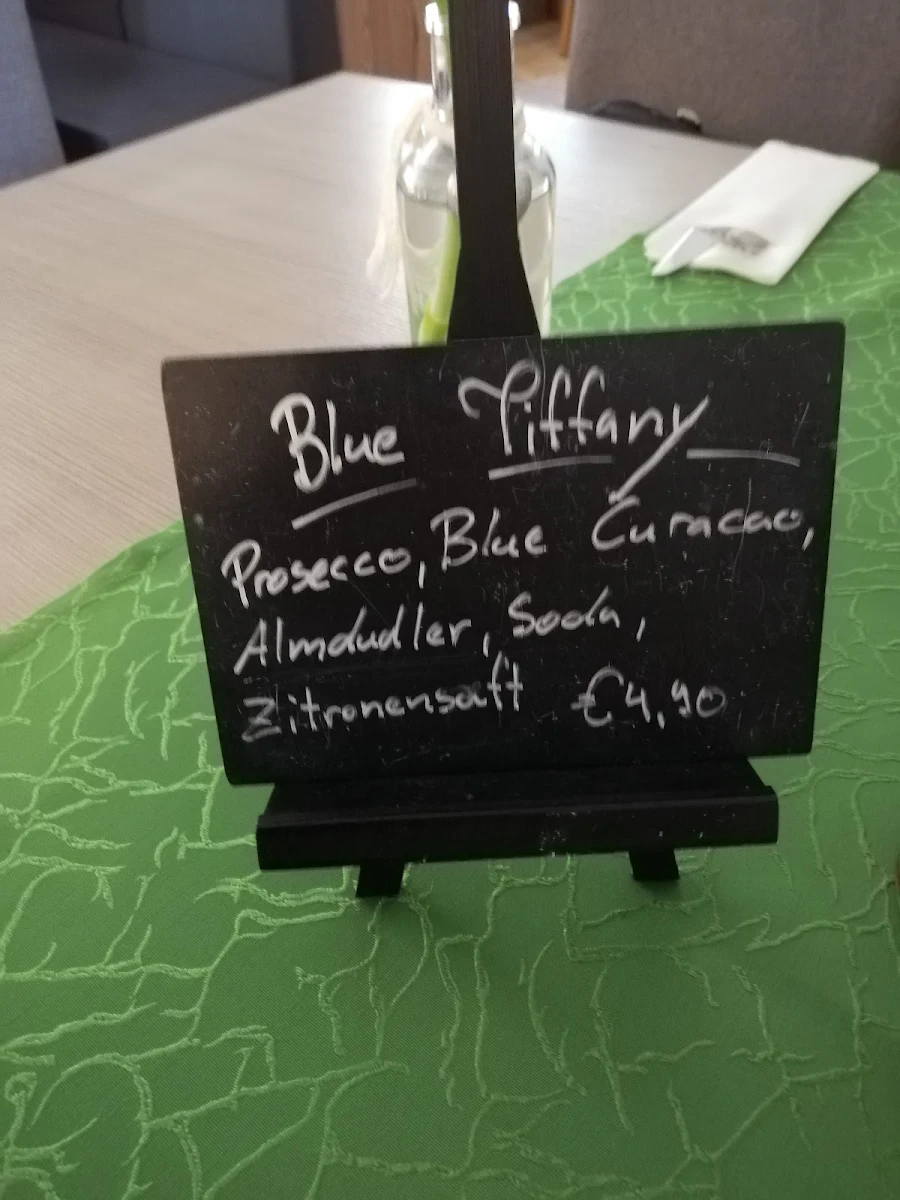 Blue Tiffany
Prosecco, Blue Curacao,
Almdudler, Soda,
Zitronensaft €4,90